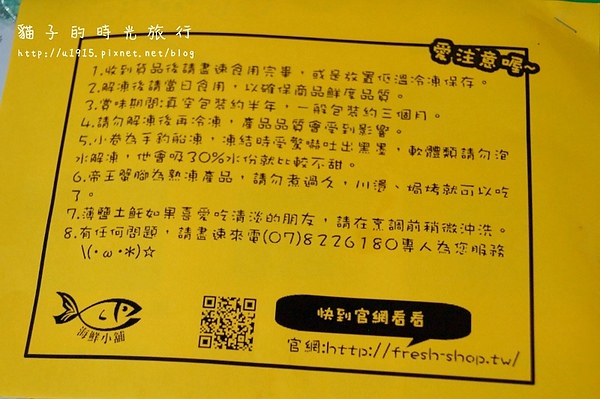 貓子的時光旅行
http://u1915.pixnet.net/blog
愛注意喔~
1.收到貨品後請盡速食用完畢，或是放置低溫冷凍保存。
2.解凍後請當日食用，以確保商品鮮度品質。
3.賞味期間:真空包裝約半年，一般包裝約三個月。
4.請勿解凍後再冷凍，產品品質會受到影響。
5.小卷為手釣船凍，凍結時受驚嚇吐出黑墨，軟體類請勿泡
水解凍，他會吸30%水份就比較不甜。
6.帝王蟹腳為熟凍產品，請勿煮過久，川燙、焗烤就可以吃
了。
7.薄鹽土魠如果喜愛吃清淡的朋友，請在烹調前稍微沖洗。
8.有任何問題，請盡速來電(07)8226180專人為您服務
\(･ω･*)☆
快到官網看看
官網:http://fresh-shop.tw/